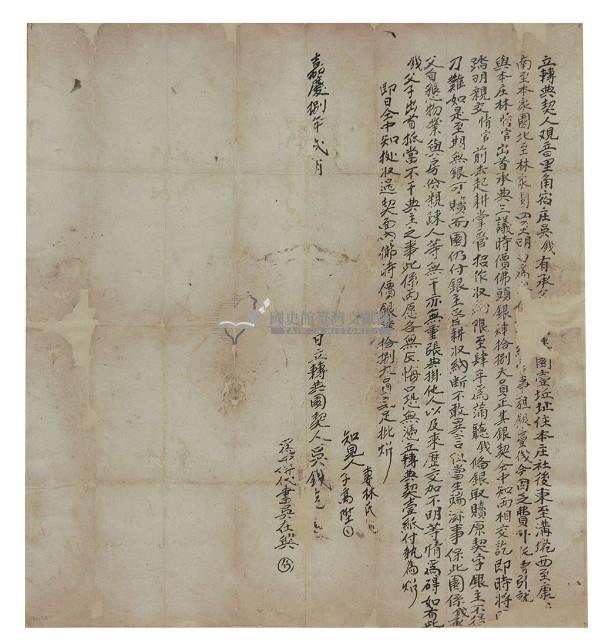 立轉典契人觀音里角宿庄吳錢有承
園壹坵址住本庄社後東至溝墘西至康
南至本家園北至林家園四至明
銀費用外托中引就
與本庄林情官出首承典三議時價佛頭銀肆拾捌大員正其銀契仝中知兩相交訖即時將
踏明親交情官前去起耕掌管招作收 限至肆年為滿聽錢備銀取贖原契字銀主不得
刁難如是至期無銀可贖而園仍付銀主起耕收納斷不敢異言 生端滋事保此園係錢
父自 物業與房份親踈人等無干亦無重張典掛他人以及來歷交加不明等情為碍如有此
錢父子出首抵當不干典主之事此係兩愿各無反悔口恐無憑立轉典契壹紙付執為炤
即日仝中知 收過契面佛時價銀肆拾捌大員完足批炤
嘉慶捌年 月
日立轉典園契人吳錢
知見人
妻林氏
子高陞
代書吳在與
國史館臺灣文獻館